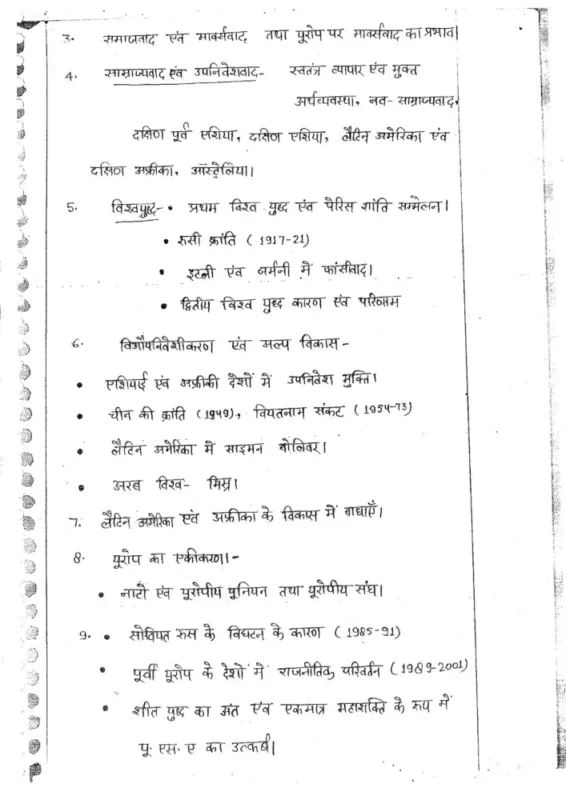 3. समाजवाद एंव मार्क्सवाद, तथा यूरोप पर मार्क्सवाद का प्रभाव।
4. साम्राज्यवाद एंव उपनिवेशवाद- स्वतंत्र व्यापार एंव मुक्त
अर्थव्यवस्था, नव- साम्राज्यवाद,
दक्षिण पूर्व एशिया, दक्षिण एशिया, लैटिन अमेरिका एंव
दक्षिण अफ्रीका, ऑस्ट्रेलिया।
5. विश्वयुद्ध- • प्रथम विश्व युद्ध एंव पेरिस शांति सम्मेलन।
• रुसी क्रांति (1917-21)
• इटली एंव जर्मनी में फांसीवाद।
• द्वितीय विश्व युद्ध कारण एंव परिणाम
6. विऔपनिवेशीकरण एंव अल्प विकास-
• एशियाई एंव अफ्रीकी देशों में उपनिवेश मुक्ति।
• चीन की क्रांति (1949), वियतनाम संकट (1954-73)
• लैटिन अमेरिका में साइमन बोलिवर।
• अरब विश्व- मिस्र।
7. लैटिन अमेरिका एंव अफ्रीका के विकास में बाधाएँ।
8. यूरोप का एकीकरण।-
• नाटो एंव यूरोपीय यूनियन तथा यूरोपीय संघ।
9. • सोवियत रुस के विघटन के कारण (1985-91)
• पूर्वी यूरोप के देशों में राजनीतिक परिवर्तन (1989-2001)
• शीत युद्ध का अंत एंव एकमात्र महाशक्ति के रुप में
यू. एस. ए का उत्कर्ष।